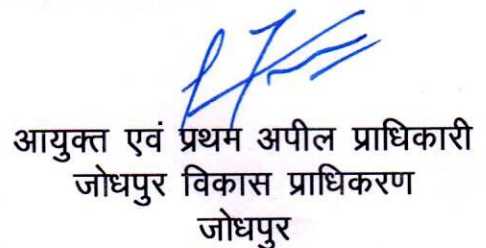 आयुक्त एवं प्रथम अपील प्राधिकारी
जोधपुर विकास प्राधिकरण
जोधपुर